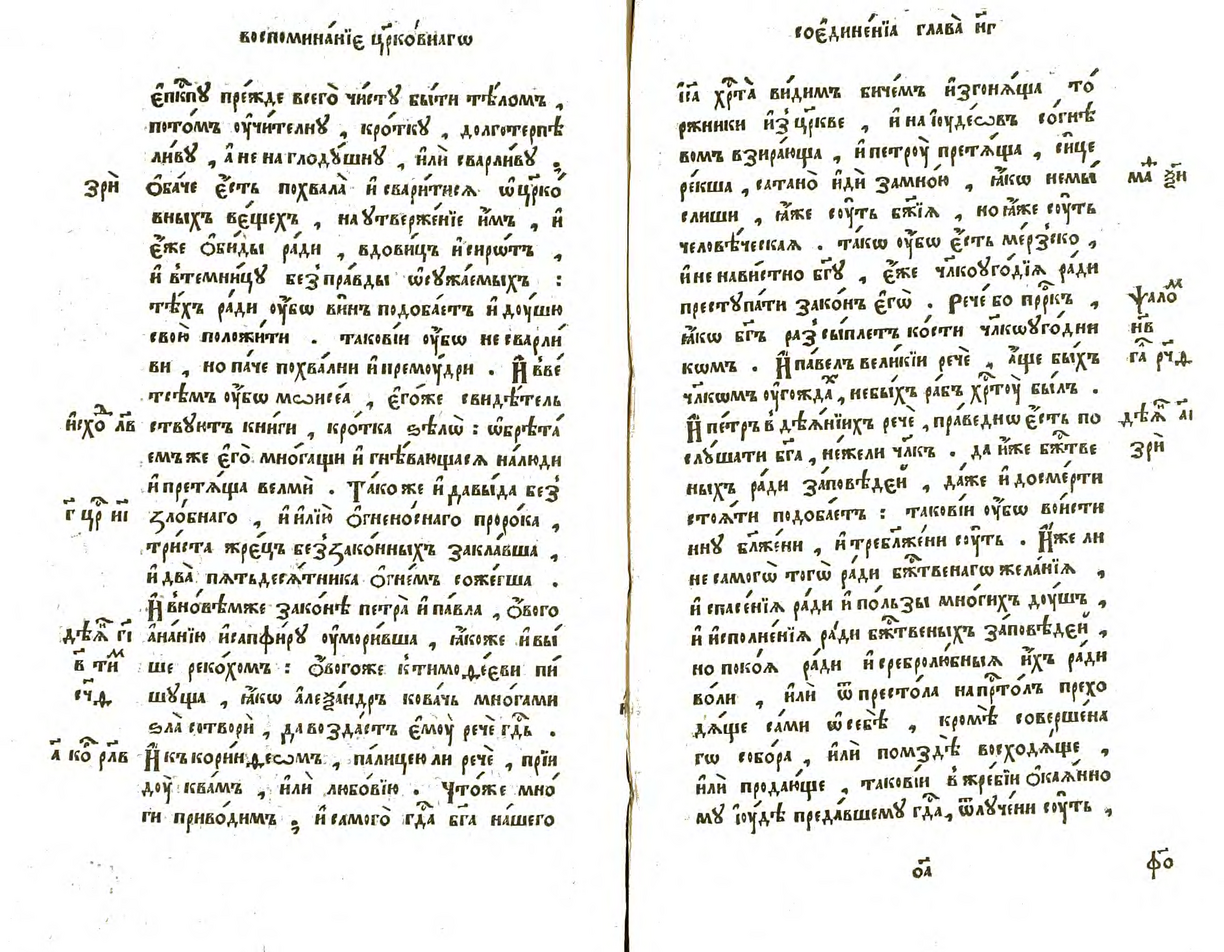 воспомина́нїє цр҃ко́внагѡ
є҆пⷭ҇кпꙋ пре́жде всего̀ чи́стꙋ бы́ти тѣ́ломъ ,
пото́мъ ᲂу҆чи́телнꙋ , кро́ткꙋ , долготерпѣ
ли́вꙋ , а҆ не на глодꙋ́шнꙋ , и҆лѝ сварли́вꙋ .
зрѝ
Ѻ҆ба́че є҆́сть похвала̀ и҆ свари́тисѧ ѡ҆ цр҃ко́
вныхъ ве́щехъ , на ᲂу҆тверже́нїе и҆̀мъ , и҆
є҆́же ѻ҆би́ды ра́ди , вдови́цъ и҆ сиро́тъ ,
и҆ в̾темни́цꙋ без̾пра́вды ѡ҆сꙋжа́емыхъ :
тѣ́хъ ра́ди ᲂу҆́бѡ ви́нъ подоба́етъ и҆ дꙋ́шꙋ
свою̀ положи́ти . такові́и ᲂу҆́бѡ не сварли́
ви , но па́че похва́лни и҆ премꙋ́дри . И҆ в̾ве́
тсѣмъ ᲂу҆́бѡ мѡисе́а , є҆го́же свидѣ́тель
и҆схо́ⷣ лв
ствꙋютъ кни́ги , кро́тка ѕѣлѡ̀ : ѡ҆брѣта́
емъже є҆го̀ мно́гащи и҆ гнѣ́вающасѧ на́люди
и҆ претѧ́ща велмѝ . Та́коже и҆ давы́да без̾
г҃ црⷭ҇ і҃и
зло́бнаго , и҆ и҆лїю̀ ѻ҆гнено́снаго проро́ка ,
три́ста жре́цъ без̾зако́нныхъ закла́вша ,
и҆ два̀ пѧтьдесѧ́тника ѻ҆гне́мъ соже́гша .
И҆ в̾но́вѣмже зако́нѣ петра̀ и҆ па́вла , ѻ҆́вого
дѣѧⷩ҇ г҃і
а҆на́нїю и҆ сапфи́рꙋ ᲂу҆мори́вша , ꙗ҆́коже и҆ вы́
в҃ тиⷨ
ше реко́хомъ : ѻ҆́вогоже к̾тимоѳе́еви пи́
сч҃д
шꙋща , ꙗ҆́кѡ а҆леѯа́ндръ кова́чь мно́гами
ѕла̀ сотворѝ , да возда́стъ є҆мꙋ̀ речѐ гдⷭ҇ь .
а҃ коⷬ҇ рл҃в
И҆ къ кори́нѳѡмъ , па́лицею ли речѐ , прїи
дꙋ̀ к̾ва́мъ , и҆лѝ любо́вїю . Что́же мно́
ги приво́димъ , и҆ самого̀ гдⷭ҇а бг҃а на́шего
соє҆дине́нїа глава̀ н҃г
і҆с҃а хрⷭ҇та̀ ви́димъ биче́мъ и҆згонѧ́ща то́
ржники и҆з̾ цр҃кве , и҆ на і҆ꙋде́ѡвъ со́гнѣ
вомъ взира́юща , и҆ петрꙋ̀ претѧ́ща , си́це
маⷴ ѯ҃и
ре́кша , сатано̀ и҆дѝ замно́ю , ꙗ҆́кѡ немы́
слиши , ꙗ҆̀же сꙋ́ть бж҃їѧ , но ꙗ҆̀же сꙋ́ть
человѣ́ческаѧ . та́кѡ ᲂу҆́бѡ є҆́сть ме́рз̾ско ,
и҆ не нави́стно бг҃ꙋ , є҆́же чл҃коуго́дїѧ ра́ди
ѱало́ⷨ
престꙋпа́ти зако́нъ є҆гѡ̀ . Рече́ бо пррⷪ҇къ ,
н҃в
ꙗ҆́кѡ бг҃ъ раз̾сы́плетъ ко́сти чл҃кѡуго́дни
га҃ рч҃д
кѡмъ . И҆ па́велъ вели́кїи речѐ , а҆́ще бы́хъ
чл҃кѡмъ ᲂу҆гожда́ⷯ , не бы́хъ ра́бъ хрⷭ҇тꙋ̀ бы́лъ .
дѣѧⷩ҇ а҃і
И҆ пе́тръ в̾ дѣѧ́нїихъ речѐ , пра́веднѡ є҆́сть по
слꙋ́шати бг҃а , не́жели чл҃къ . да и҆́же бжⷭ҇тве
зрѝ
ныхъ ра́ди за́повѣдей , да́же и҆ досме́рти
стоѧ́ти подоба́етъ : такові́и ᲂу҆́бѡ вои́сти
ннꙋ бл҃же́ни , и҆ требл҃же́ни сꙋ́ть . И҆́же ли
не самогѡ̀ тогѡ̀ ра́ди бжⷭ҇твенагѡ жела́нїѧ ,
и҆ спасе́нїѧ ра́ди и҆ по́льзы мно́гихъ дꙋ́шъ ,
и҆ и҆сполне́нїѧ ра́ди бжⷭ҇твеныхъ за́повѣдей ,
но поко́ѧ ра́ди и҆ сребролю́бныѧ и҆́хъ ра́ди
во́ли , и҆лѝ ѿ престо́ла на прⷭ҇то́лъ прехо
дѧ́ще са́ми ѡ҆ себѣ̀ , кромѣ̀ соверше́на
гѡ собо́ра , и҆лѝ помздѣ̀ восходѧ́ще ,
и҆лѝ продаю́ще , такові́и в̾ жре́бїи ѻ҆каѧ́нно
мꙋ і҆ꙋ́дѣ преда́вшемꙋ гдⷭ҇а , ѿлꙋче́ни сꙋ́ть ,
о҃а
ф҃о